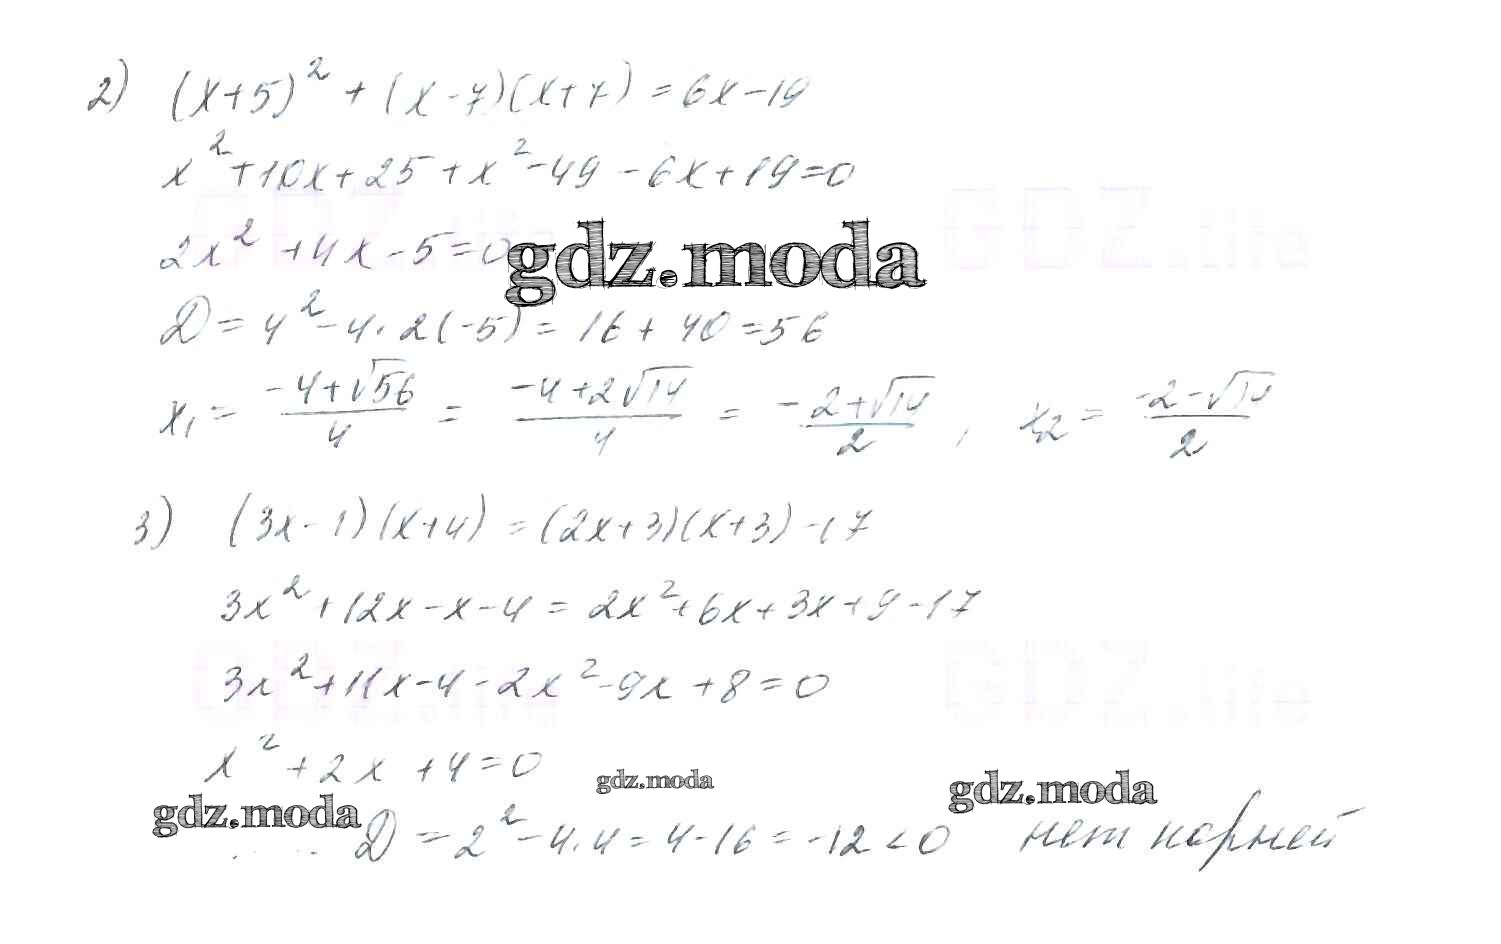 2) (x+5)² + (x-7)(x+7) = 6x-19
x² +10x+25+x²-49-6x+19=0
2x² +4x-5=0
gdz.moda
D = 4² -4·2(-5) = 16+40=56
x₁ = (-4+√56)/4 = (-4+2√14)/4 = (-2+√14)/2 , x₂ = (-2-√14)/2
3) (3x-1)(x+4) = (2x+3)(x+3)-17
3x²+12x-x-4 = 2x²+6x+3x+9-17
3x²+11x-4-2x²-9x+8=0
x²+2x+4=0
gdz.moda
gdz.moda
gdz.moda
D = 2² -4·4 = 4-16 = -12 < 0 нет корней
GDZ.life
GDZ.life
GDZ.life
GDZ.life